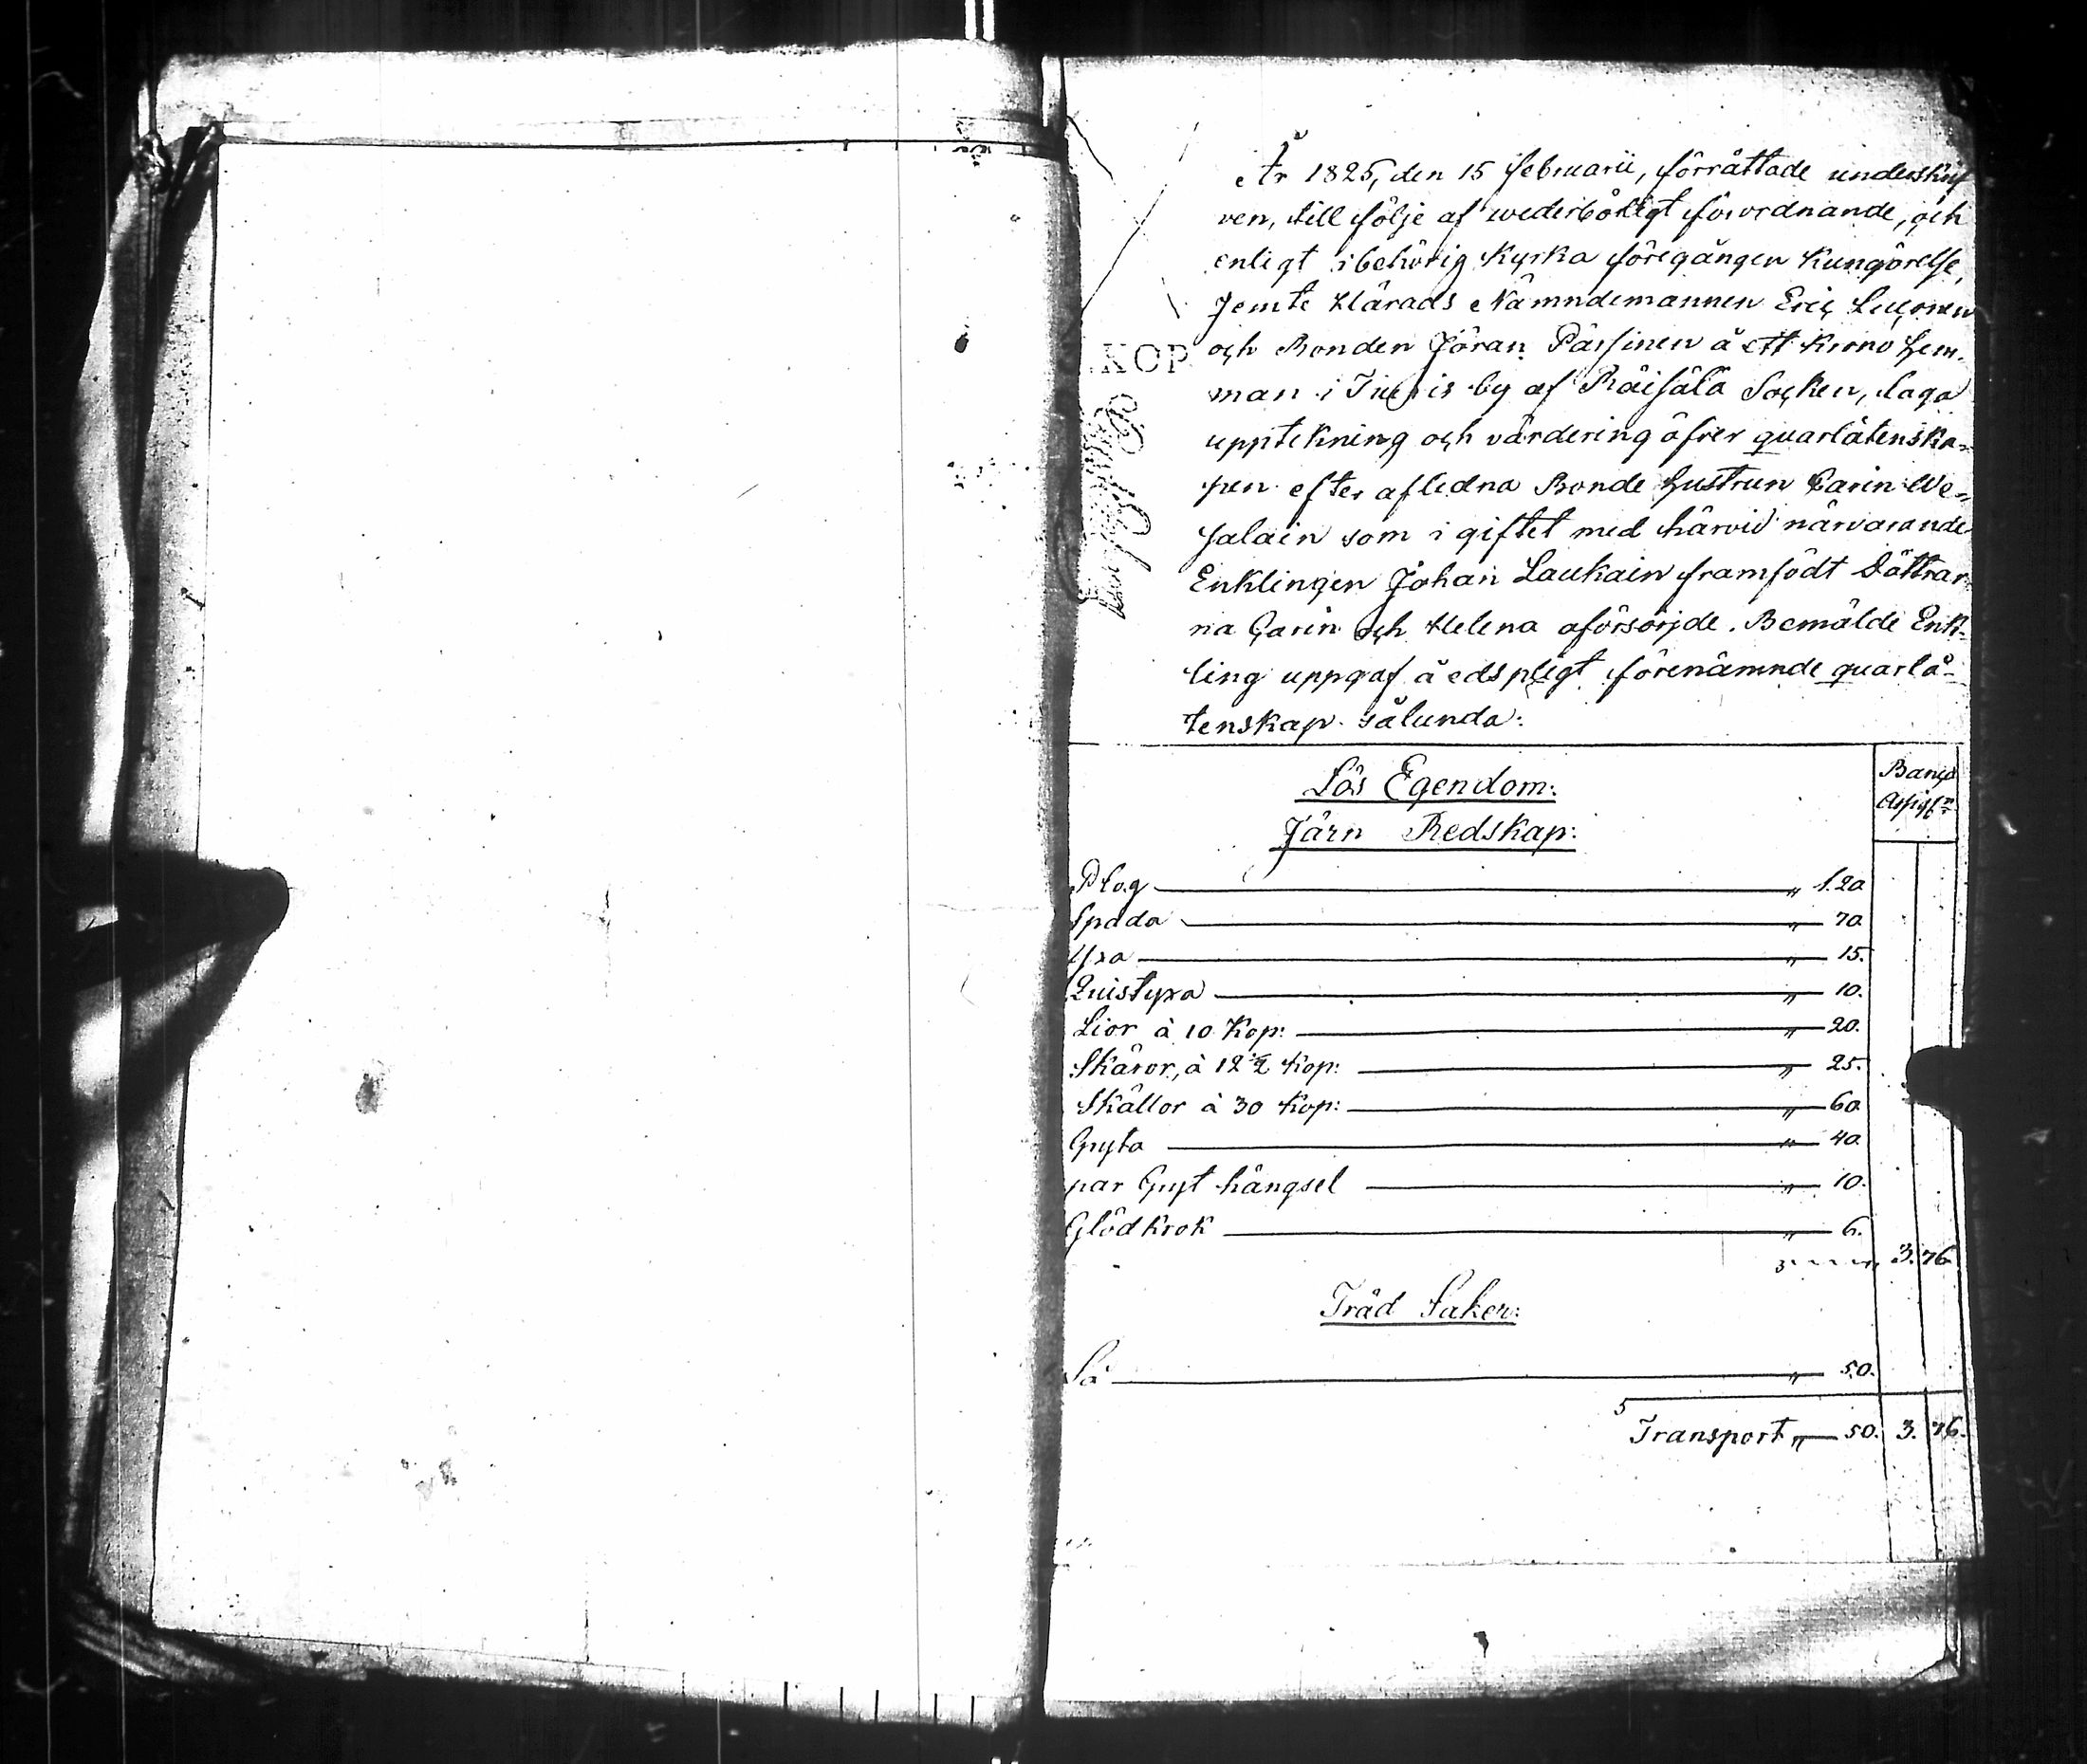 År 1825, den 15 februarii, förrättade underskrif
ven, till följe af wederbörligt förordnande, och
enligt i behörig Kyrka föregången Kungörelse,
Jemte Härads Nämndemannen Eric
och Bonden Jöran Pärsinen å ett Krono hem-
KOP
man i by af Räisälä Socken, laga
upptekning och värdering öfver quarlåtenska-
pen efter afledna Bonde hustrun Carin We-
salain som i giftet med härvid närvarande
Enklingen Johan Laukain framfödt Döttrar-
na Carin och Helena oförsörjde. Bemälde Enk-
ling uppgaf å edspligt förenämnde quarlå-
tenskap sålunda:
Lös Egendom:
Banco
Assign:
Järn Redskap:
Plog „ 1.20
Spada „ 70
Yxa „ 15.
Quistyxa „ 10.
Lior à 10 Kop: „ 20.
Skäror, à 12 ½ Kop: „ 25.
Skällor à 30 Kop: „ 60
Gryta „ 40
par Gryt hängsel „ 10.
Glödkrok „ 6.
3. 76
Träd Saker:
Så „ 50.
Transport „ 50. 3. 76.